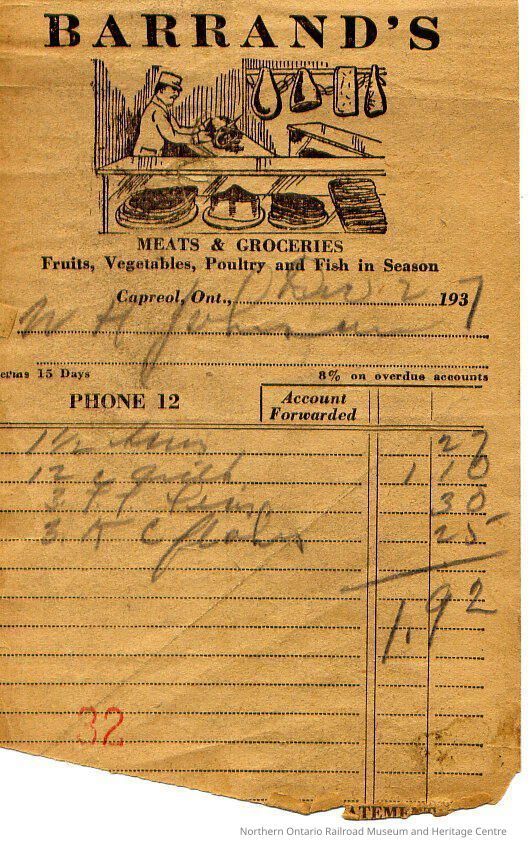 BARRAND'S
MEATS & GROCERIES
Fruits, Vegetables, Poultry and Fish in Season
Capreol, Ont., Dec 2 1937
W H Johnson
erms 15 Days 8% on overdue accounts
PHONE 12 Account Forwarded
1 27
12 1 10
3 30
3 K C 25
1.92
32
ATEME
Northern Ontario Railroad Museum and Heritage Centre